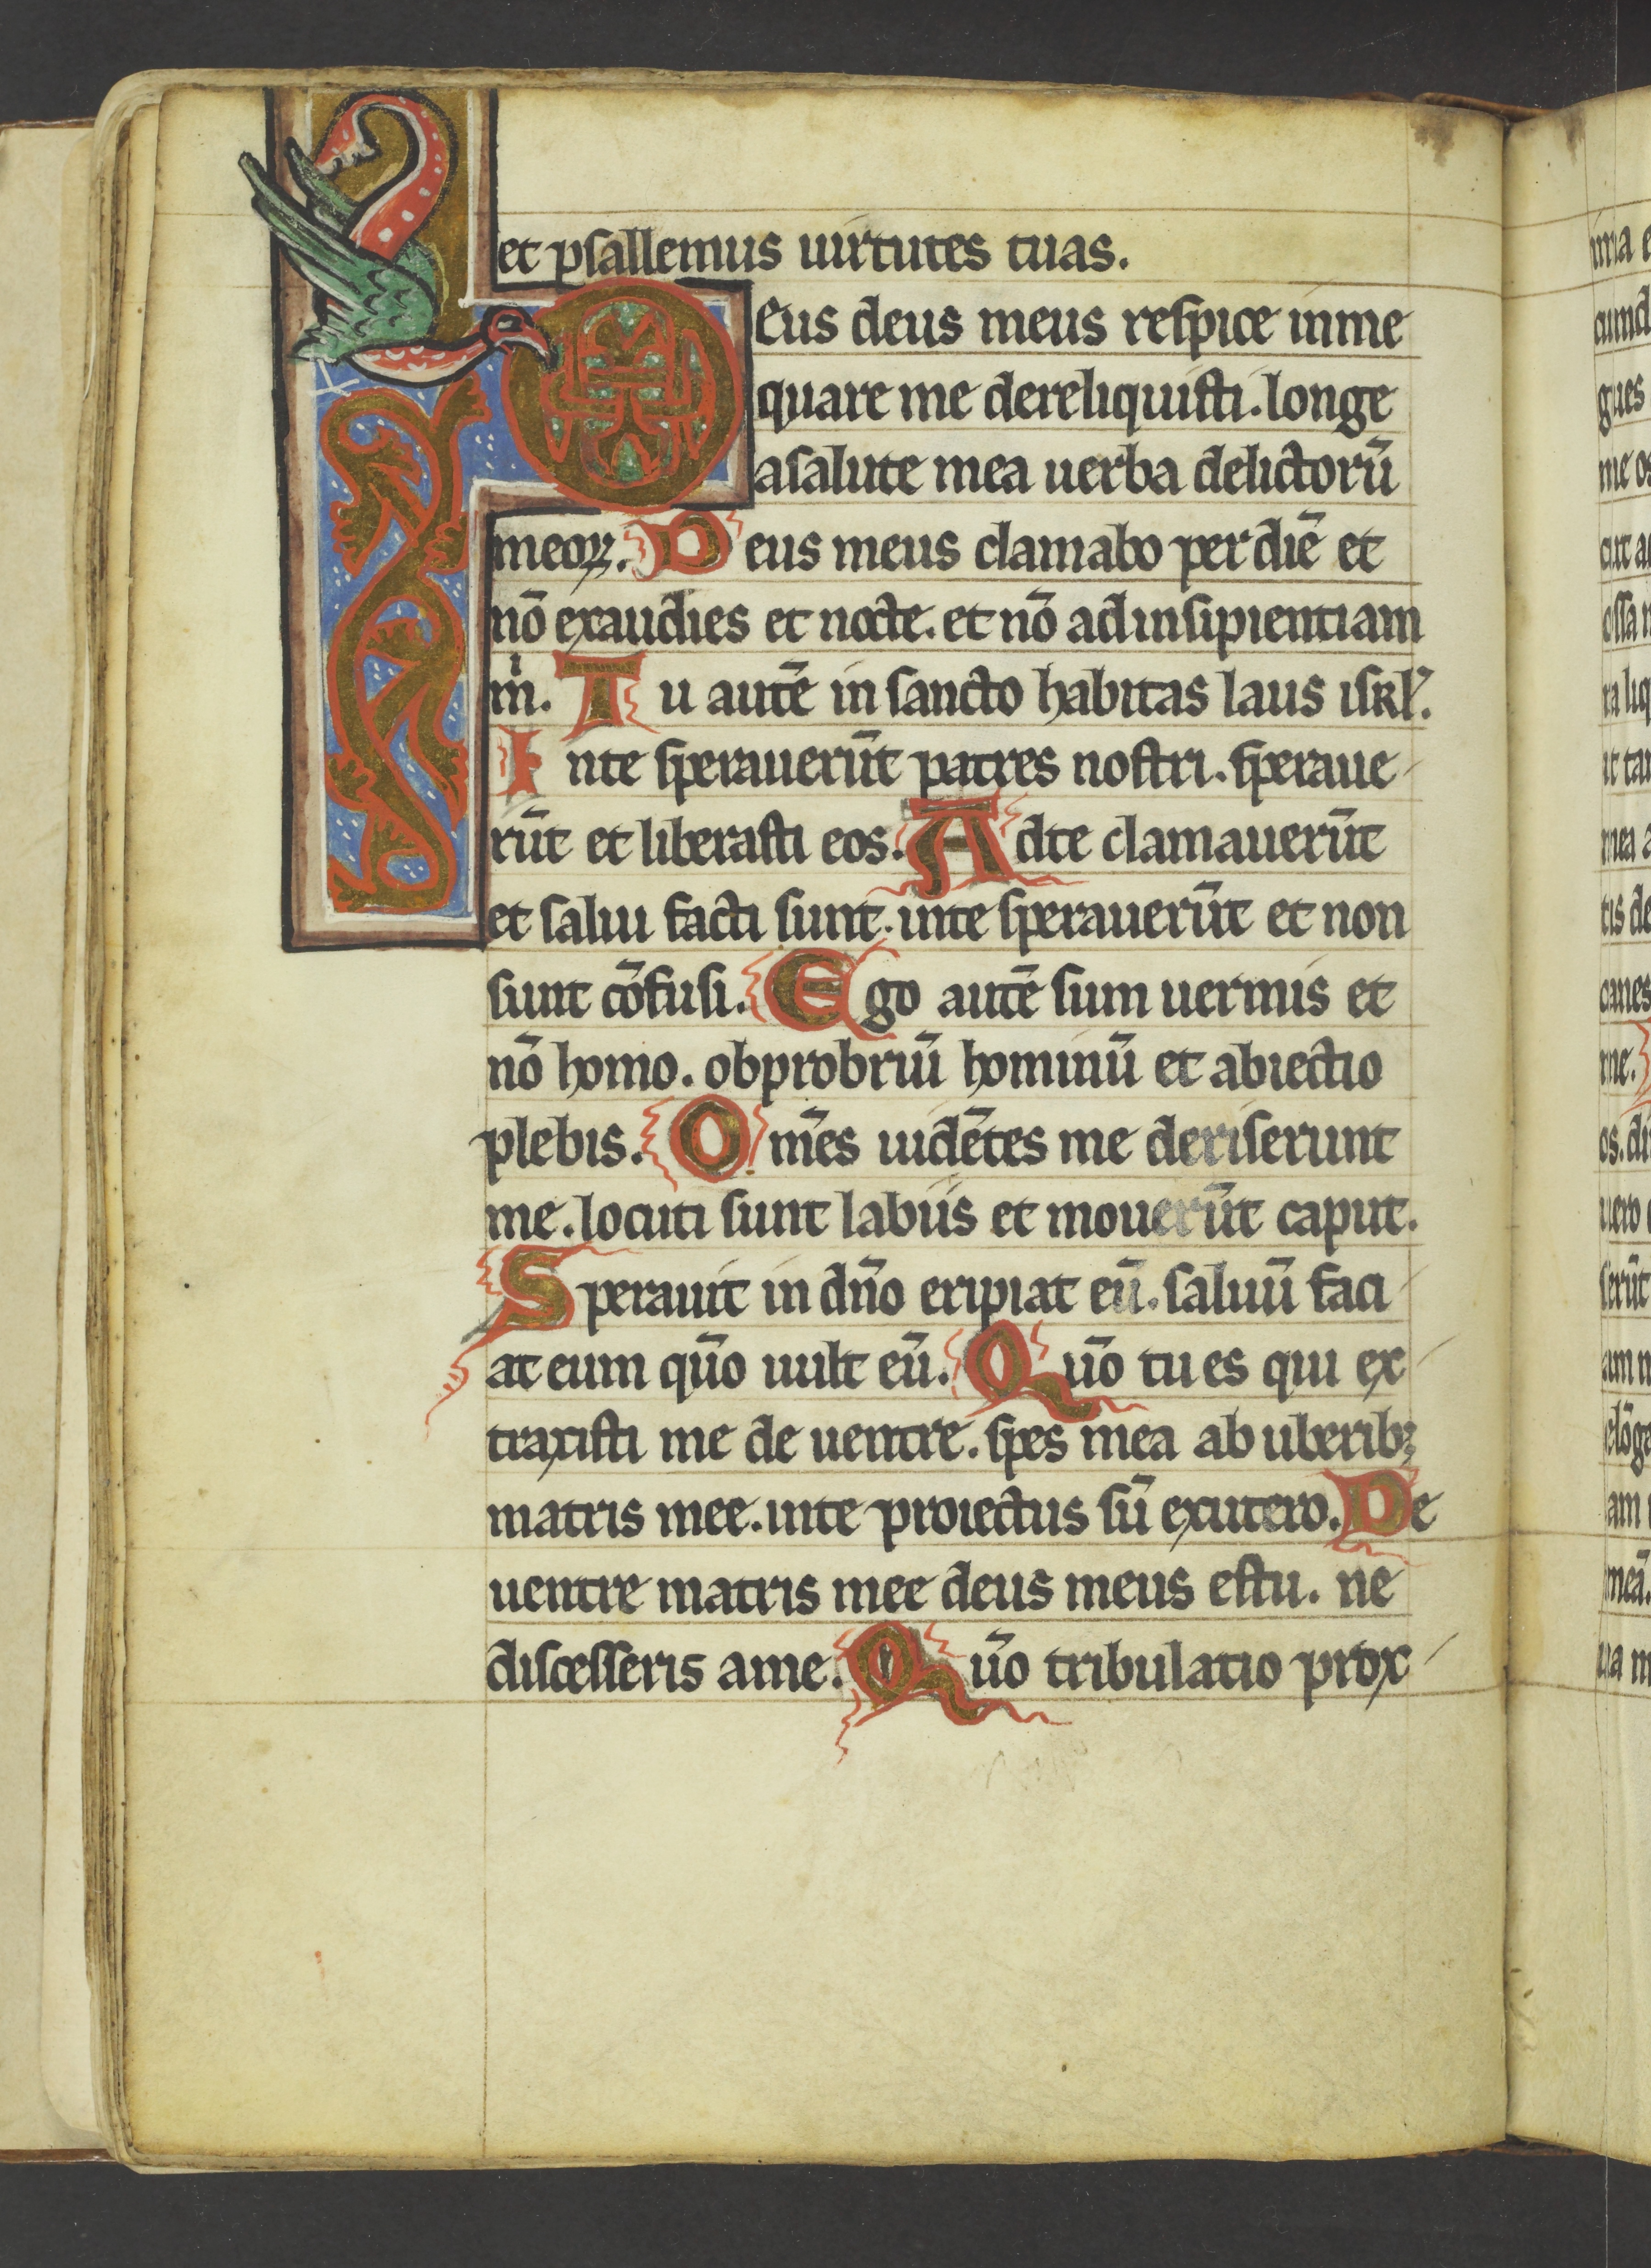 et psallemus uirtutes tuas.
DEus deus meus respice inme
quare me dereliquisti. longe
asalute mea uerba delictorū
meoꝝ. Deus meus clamabo per diē et
nō exaudies et nocte. et nō ad insipientiam
m̍. Tu autē in sancto habitas laus isrl̕.
Inte sperauerūt patres nostri. speraue
rūt et liberasti eos. Adte clamauerūt
et salui facti sunt. inte sperauerūt et non
sunt cōfusi. Ego autē sum uermis et
nō homo. obprobriū hominū et abiectio
plebis. Om̄es uidētes me deriserunt
me. locuti sunt labiis et mouerūt caput.
Sperauit in dn̄o eripiat eū. saluū faci
at eum qūo uult eū. Qūo tu es qui ex
traxisti me de uentre. spes mea ab uberibꝫ
matris mee. inte proiectus sū exutero. De
uentre matris mee deus meus estu. ne
discesseris ame. Qūo tribulatio prox